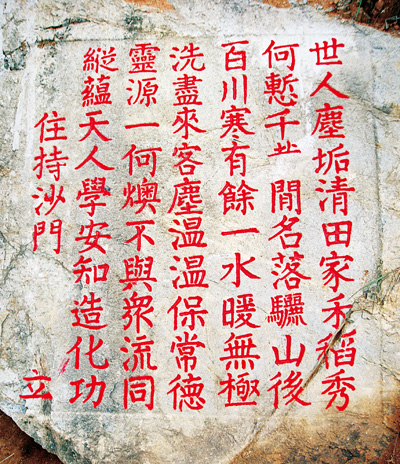 世人塵垢清田家禾稻秀
何慙千閒名落驪山後
百川寒有餘一水暖無極
洗盡來客塵温温保常德
靈源一何燠不與衆流同
縱蘊天人學安知造化功
住持沙門 立